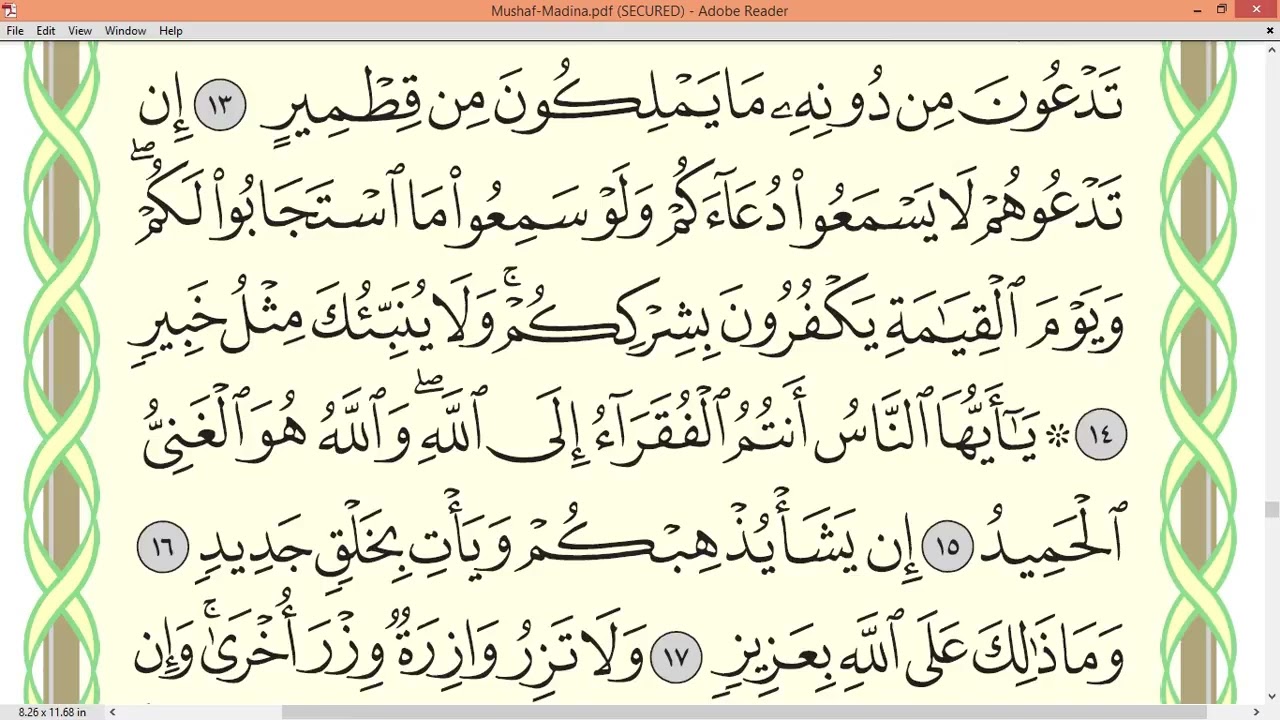 Mushaf-Madina.pdf (SECURED) - Adobe Reader
File Edit View Window Help
تَدۡعُونَ مِن دُونِهِۦ مَا يَمۡلِكُونَ مِن قِطۡمِيرٍ ١٣ إِن
تَدۡعُوهُمۡ لَا يَسۡمَعُواْ دُعَآءَكُمۡ وَلَوۡ سَمِعُواْ مَا ٱسۡتَجَابُواْ لَكُمۡۖ
وَيَوۡمَ ٱلۡقِيَٰمَةِ يَكۡفُرُونَ بِشِرۡكِكُمۡۚ وَلَا يُنَبِّئُكَ مِثۡلُ خَبِيرٖ
١٤ ۞ يَٰٓأَيُّهَا ٱلنَّاسُ أَنتُمُ ٱلۡفُقَرَآءُ إِلَى ٱللَّهِۖ وَٱللَّهُ هُوَ ٱلۡغَنِيُّ
ٱلۡحَمِيدُ ١٥ إِن يَشَأۡ يُذۡهِبۡكُمۡ وَيَأۡتِ بِخَلۡقٖ جَدِيدٖ ١٦
وَمَا ذَٰلِكَ عَلَى ٱللَّهِ بِعَزِيزٖ ١٧ وَلَا تَزِرُ وَازِرَةٞ وِزۡرَ أُخۡرَىٰۚ وَإِن
8.26 x 11.68 in